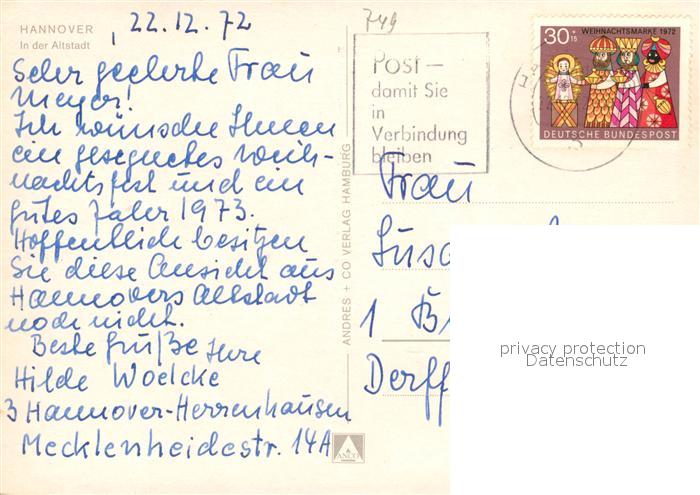 HANNOVER
In der Altstadt
22.12.72
749
Sehr geehrte Frau
Meyer!
Ich wünsche Ihnen
ein gesegnetes Weih-
nachtsfest und ein
gutes Jahr 1973.
Hoffentlich besitzen
Sie diese Ansicht aus
Hannovers Altstadt
noch nicht.
Beste Grüße Ihre
Hilde Woelcke
3 Hannover-Herrenhausen
Mecklenheidestr. 14A
ANDRES + CO VERLAG HAMBURG
ANCO
Post –
damit Sie
in
Verbindung
bleiben
30+15
WEIHNACHTSMARKE 1972
DEUTSCHE BUNDESPOST
Frau
1 B
Derff
privacy protection
Datenschutz